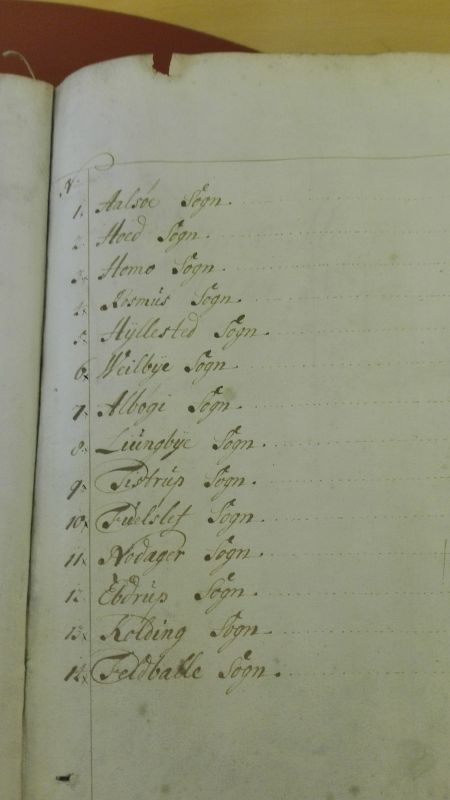 N.
1. Aalsøe Sogn.
2. Hoed Sogn.
3. Homo Sogn.
4. Rosmus Sogn.
5. Hÿllested Sogn.
6. Weilbÿe Sogn.
7. Albøgi Sogn.
8. Liungbÿe Sogn.
9. Tistrup Sogn.
10. Fuelslef Sogn.
11. Nødager Sogn.
12. Ebdrup Sogn.
13. Kolding Sogn.
14. Feldballe Sogn.